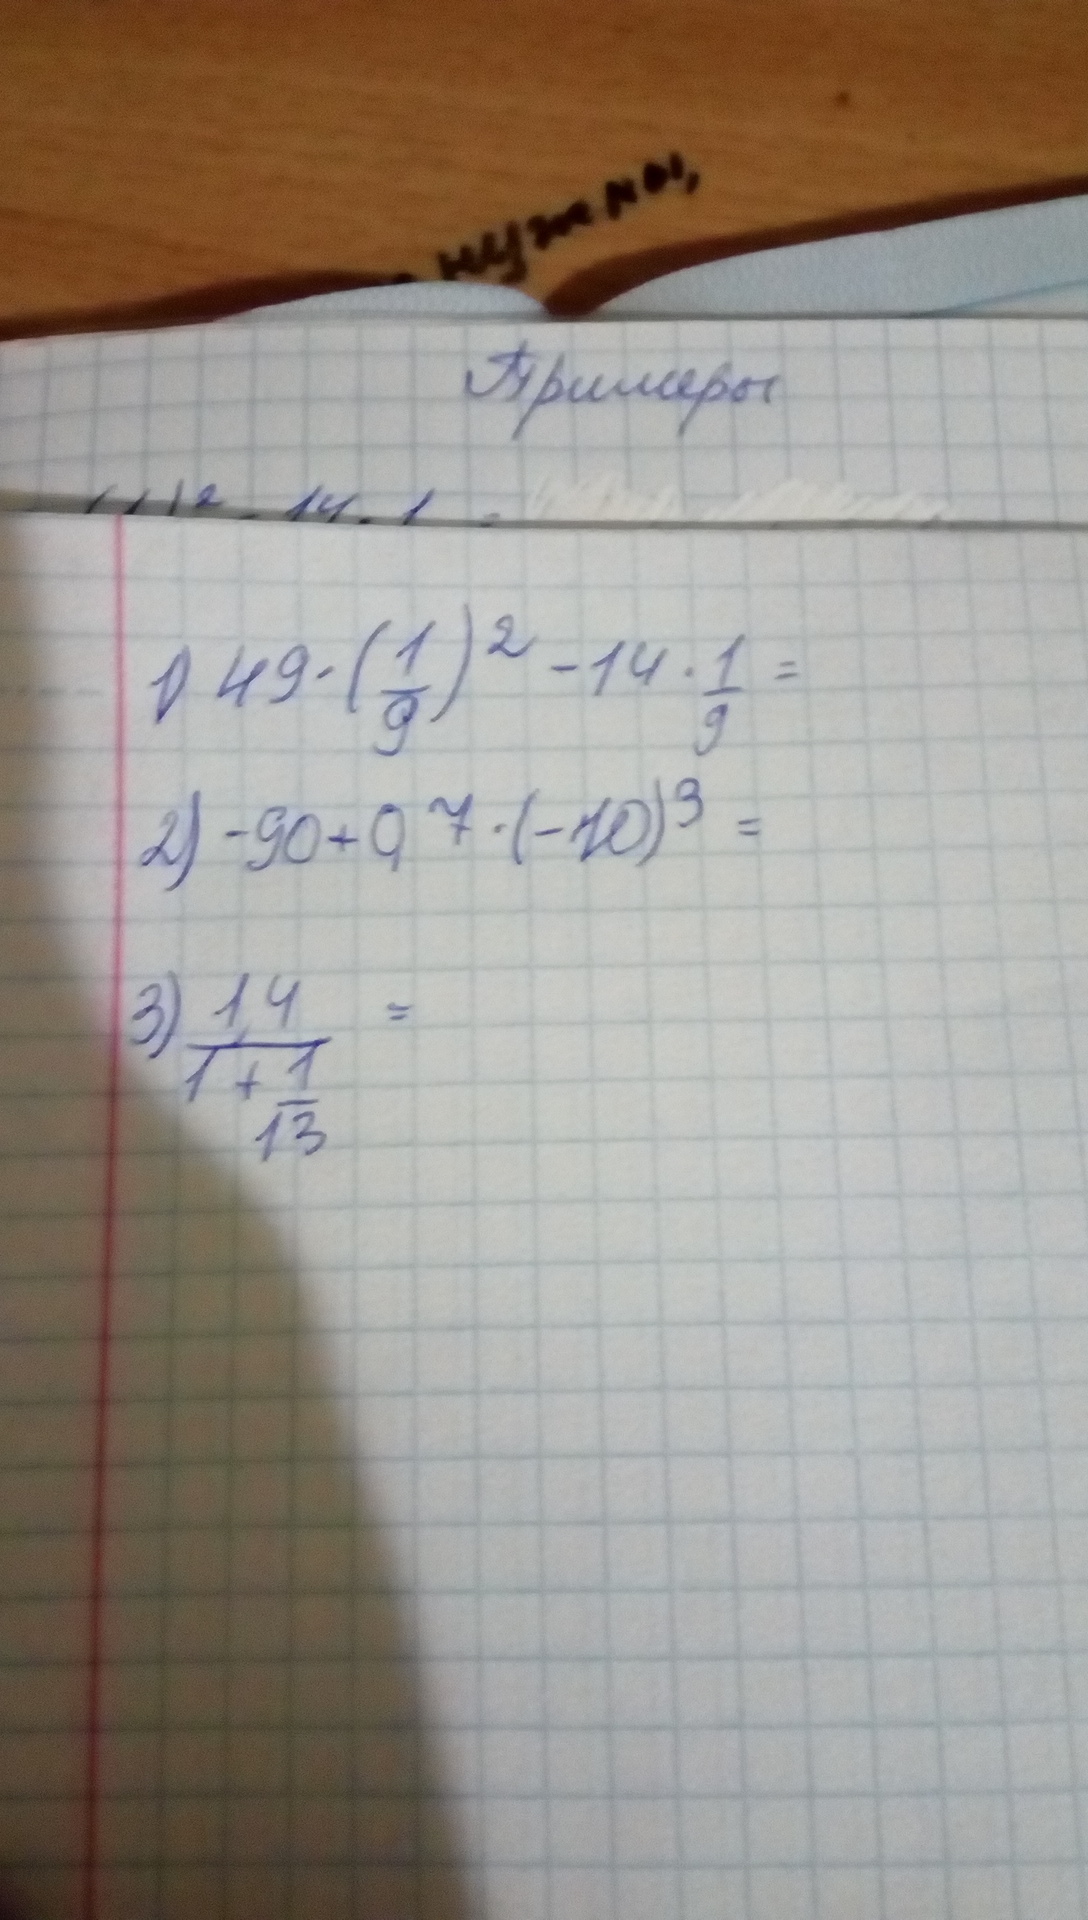 нужны,
Примеры
1) 49·(1/9)² - 14·1/9 =
2) -90+0,7·(-10)³ =
3) 1,4/(1+1/13) =